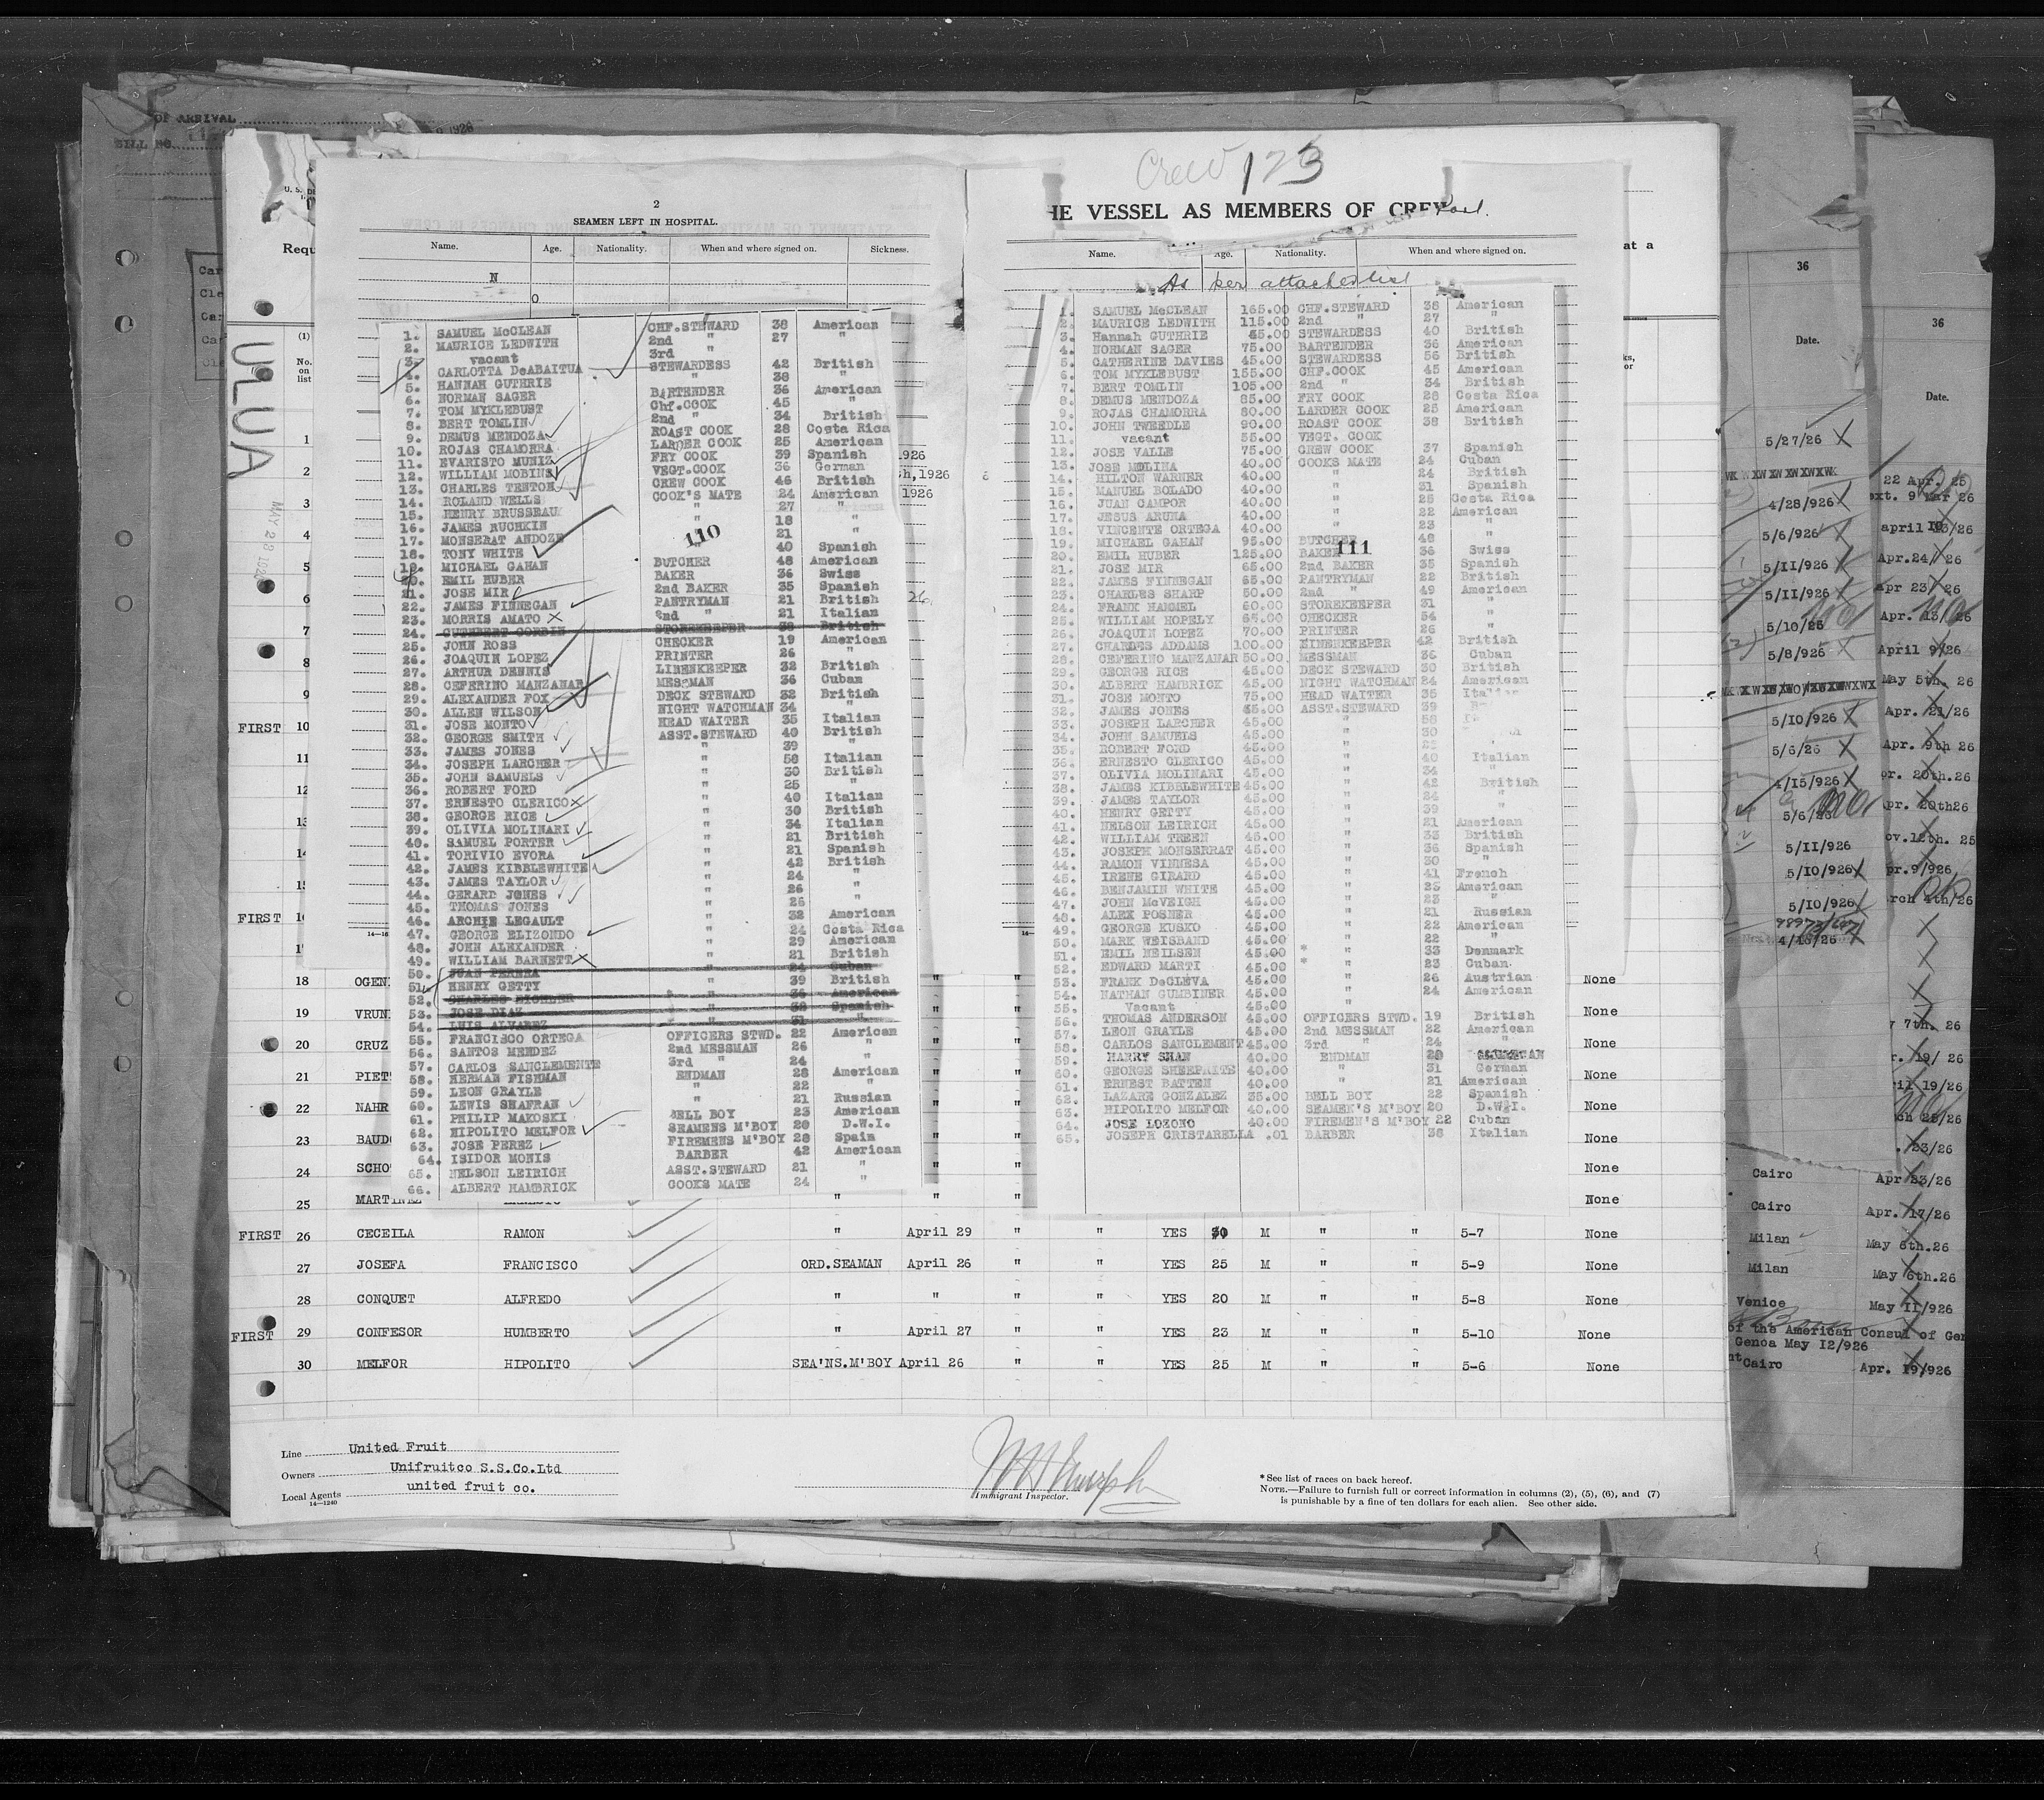 OF ARRIVAL
BILL NO.
ULUA
MAY 28 1926
Requ
(1)
No.
on
list
2
SEAMEN LEFT IN HOSPITAL.
Name. Age. Nationality. When and where signed on. Sickness.
N
O
1. SAMUEL McCLEAN CHF.STEWARD 38 American
2. MAURICE LEDWITH 2nd " 27 "
3. vacant 3rd "
4. CARLOTTA DeABAITUA STEWARDESS 42 British
5. HANNAH GUTHRIE " 38 "
6. NORMAN SAGER BARTENDER 36 American
7. TOM MYKLEBUST Chf.COOK 45 "
8. BERT TOMLIN 2nd " 34 British
9. DEMUS MENDOZA ROAST COOK 28 Costa Rica
10. ROJAS CHAMORRA LARDER COOK 25 American
11. EVARISTO MUNIZ FRY COOK 39 Spanish
12. WILLIAM MOBINS VEGT.COOK 36 German
13. CHARLES TENTON CREW COOK 46 British
14. ROLAND WELLS COOK'S MATE 24 American
15. HENRY BRUSSEAU " 27 "
16. JAMES RUCHKIN " 18 "
17. MONSERAT ANDOZE 21 "
18. TONY WHITE " 40 Spanish
19. MICHAEL GAHAN BUTCHER 48 American
20. EMIL HUBER BAKER 36 Swiss
21. JOSE MIR 2nd BAKER 35 Spanish
22. JAMES FINNEGAN PANTRYMAN 21 British
23. MORRIS AMATO 2nd " 21 Italian
24. CUTHBERT CORBIN STOREKEEPER 38 British
25. JOHN ROSS CHECKER 19 American
26. JOAQUIN LOPEZ PRINTER 26 "
27. ARTHUR DENNIS LINENKEEPER 32 British
28. CEFERINO MANZANAR MESSMAN 36 Cuban
29. ALEXANDER FOX DECK STEWARD 32 British
30. ALLEN WILSON NIGHT WATCHMAN 34 "
31. JOSE MONTO HEAD WAITER 35 Italian
32. GEORGE SMITH ASST.STEWARD 40 British
33. JAMES JONES " 39 "
34. JOSEPH LARCHER " 58 Italian
35. JOHN SAMUELS " 30 British
36. ROBERT FORD " 25 "
37. ERNESTO CLERICO " 40 Italian
38. GEORGE RICE " 30 British
39. OLIVIA MOLINARI " 34 Italian
40. SAMUEL PORTER " 21 British
41. TORIVIO EVORA " 21 Spanish
42. JAMES KIBBLEWHITE " 42 British
43. JAMES TAYLOR " 24 "
44. GERARD JONES " 26 "
45. THOMAS JONES " 25 "
46. ARCHIE LEGAULT " 32 American
47. GEORGE ELIZONDO " 24 Costa Rica
48. JOHN ALEXANDER " 29 American
49. WILLIAM BARNETT " 21 British
50. JUAN PERERA " 24 Cuban
51. HENRY GETTY " 39 British
52. CHARLES EICHLER " 36 American
53. JOSE DIAZ " 38 Spanish
54. LUIS ALVAREZ " 31 "
55. FRANCISCO ORTEGA OFFICERS STWD. 22 American
56. SANTOS MENDEZ 2nd MESSMAN 26 "
57. CARLOS SANCLEMENTE 3rd " 24 "
58. HERMAN FISHMAN ENDMAN 28 American
59. LEON GRAYLE " 22 "
60. LEWIS SHAFRAN " 21 Russian
61. PHILIP MAKOSKI BELL BOY 23 American
62. HIPOLITO MELFOR SEAMENS M'BOY 20 D.W.I.
63. JOSE PEREZ FIREMENS M'BOY 28 Spain
64. ISIDOR MONIS BARBER 42 American
65. NELSON LEIRICH ASST.STEWARD 21 "
66. ALBERT HAMBRICK COOKS MATE 24 "
110
Crew 123
HE VESSEL AS MEMBERS OF CREW
Name. Age. Nationality. When and where signed on.
As per attached list
1. SAMUEL McCLEAN 165.00 CHF.STEWARD 38 American
2. MAURICE LEDWITH 115.00 2nd " 27 "
3. Hannah GUTHRIE 45.00 STEWARDESS 40 British
4. NORMAN SAGER 75.00 BARTENDER 36 American
5. CATHERINE DAVIES 45.00 STEWARDESS 56 British
6. TOM MYKLEBUST 155.00 CHF.COOK 45 American
7. BERT TOMLIN 105.00 2nd " 34 British
8. DEMUS MENDOZA 85.00 FRY COOK 28 Costa Rica
9. ROJAS CHAMORRA 80.00 LARDER COOK 25 American
10. JOHN TWEEDLE 90.00 ROAST COOK 38 British
11. vacant 55.00 VEGT. COOK
12. JOSE VALLE 75.00 CREW COOK 37 Spanish
13. JOSE MOLINA 40.00 COOKS MATE 24 Cuban
14. HILTON WARNER 40.00 " 24 British
15. MANUEL BOLADO 40.00 " 31 Spanish
16. JUAN CAMPOR 40.00 " 25 Costa Rica
17. JESUS ARUNA 40.00 " 22 American
18. VINCENTE ORTEGA 40.00 " 23 "
19. MICHAEL GAHAN 95.00 BUTCHER 48 "
20. EMIL HUBER 125.00 BAKER 36 Swiss
21. JOSE MIR 65.00 2nd BAKER 35 Spanish
22. JAMES FINNEGAN 65.00 PANTRYMAN 22 British
23. CHARLES SHARP 50.00 2nd " 49 American
24. FRANK HAMMEL 60.00 STOREKEEPER 31 "
25. WILLIAM HOPELY 65.00 CHECKER 54 "
26. JOAQUIN LOPEZ 70.00 PRINTER 26 "
27. CHARLES ADDAMS 100.00 LINENKEEPER 42 British
28. CEFERINO MANZANAR 50.00 MESSMAN 36 Cuban
29. GEORGE RICE 45.00 DECK STEWARD 30 British
30. ALBERT HAMBRICK 45.00 NIGHT WATCHMAN 24 American
31. JOSE MONTO 75.00 HEAD WAITER 35 Italian
32. JAMES JONES 45.00 ASST.STEWARD 39
33. JOSEPH LARCHER 45.00 " 58
34. JOHN SAMUELS 45.00 " 30
35. ROBERT FORD 45.00 "
36. ERNESTO CLERICO 45.00 " 40 Italian
37. OLIVIA MOLINARI 45.00 " 34 "
38. JAMES KIBBLEWHITE 45.00 " 42 British
39. JAMES TAYLOR 45.00 " 24 "
40. HENRY GETTY 45.00 " 39 "
41. NELSON LEIRICH 45.00 " 21 American
42. WILLIAM TREEN 45.00 " 33 British
43. JOSEPH MONSERRAT 45.00 " 36 Spanish
44. RAMON VINNESA 45.00 " 30 "
45. IRENE GIRARD 45.00 " 41 French
46. BENJAMIN WHITE 45.00 " 25 American
47. JOHN McVEIGH 45.00 " 23 "
48. ALEX POSNER 45.00 " 21 Russian
49. GEORGE KUSKO 45.00 " 22 American
50. MARK WEISBAND 45.00 " 22 "
51. EMIL NEILSEN 45.00 " 33 Denmark
52. EDWARD MARTI 45.00 " 23 Cuban
53. FRANK DeCLEVA 45.00 " 26 Austrian
54. NATHAN GULBINER 45.00 " 24 American
55. Vacant 45.00 "
56. THOMAS ANDERSON 45.00 OFFICERS STWD. 19 British
57. LEON GRAYLE 45.00 2nd MESSMAN 22 American
58. CARLOS SANCLEMENT 45.00 3rd " 24 "
59. HARRY SHAN 40.00 ENDMAN
60. GEORGE SHEEPRITE 40.00 " 31 German
61. ERNEST BATTEN 40.00 " 21 American
62. LAZARE GONZALEZ 35.00 BELL BOY 22 Spanish
63. HIPOLITO MELFOR 40.00 SEAMEN'S M'BOY 20 D.W.I.
64. JOSE LOZONO 40.00 FIREMEN'S M'BOY 22 Cuban
65. JOSEPH CRISTARELLA .01 BARBER 36 Italian
111
FIRST 10
FIRST
18 OGEN None
19 VRUN None
20 CRUZ None
21 PIET None
22 NAHR None
23 BAUD None
24 SCHO None
25 MARTINEZ ERNESTO " " None
FIRST 26 CECEILA RAMON " April 29 " " YES 30 M " " 5-7 None
27 JOSEFA FRANCISCO ORD.SEAMAN April 26 " " YES 25 M " " 5-9 None
28 CONQUET ALFREDO " " " " YES 20 M " " 5-8 None
FIRST 29 CONFESOR HUMBERTO " April 27 " " YES 23 M " " 5-10 None
30 MELFOR HIPOLITO SEA'NS.M'BOY April 26 " " YES 25 M " " 5-6 None
Line United Fruit
Owners Unifruitco S.S.Co.Ltd
Local Agents united fruit co.
14—1240
Immigrant Inspector.
* See list of races on back hereof.
NOTE.—Failure to furnish full or correct information in columns (2), (5), (6), and (7)
is punishable by a fine of ten dollars for each alien. See other side.
at a
36
Date.
5/27/26
4/28/926
5/6/926
5/11/926
5/11/926
5/10/25
5/8/926
5/10/926
5/6/26
4/15/926
5/6/26
5/11/926
5/10/926
5/10/926
4/15/26
36
Date.
22 Apr. 25
ext. 9 Mar 26
Apr.24/ 26
Apr 23/ 26
Apr. 13/ 26
April 9/26
May 5th. 26
Apr. 21/26
Apr. 9th 26
pr. 20th.26
pr. 20th26
ov.12th. 25
pr.9/926
rch 4th/26
Cairo Apr 23/26
Cairo Apr. 17/26
Milan May 6th.26
Milan May 6th.26
Venice May 11/926
of the American Consul of Gen
Genoa May 12/926
Cairo Apr. 19/926